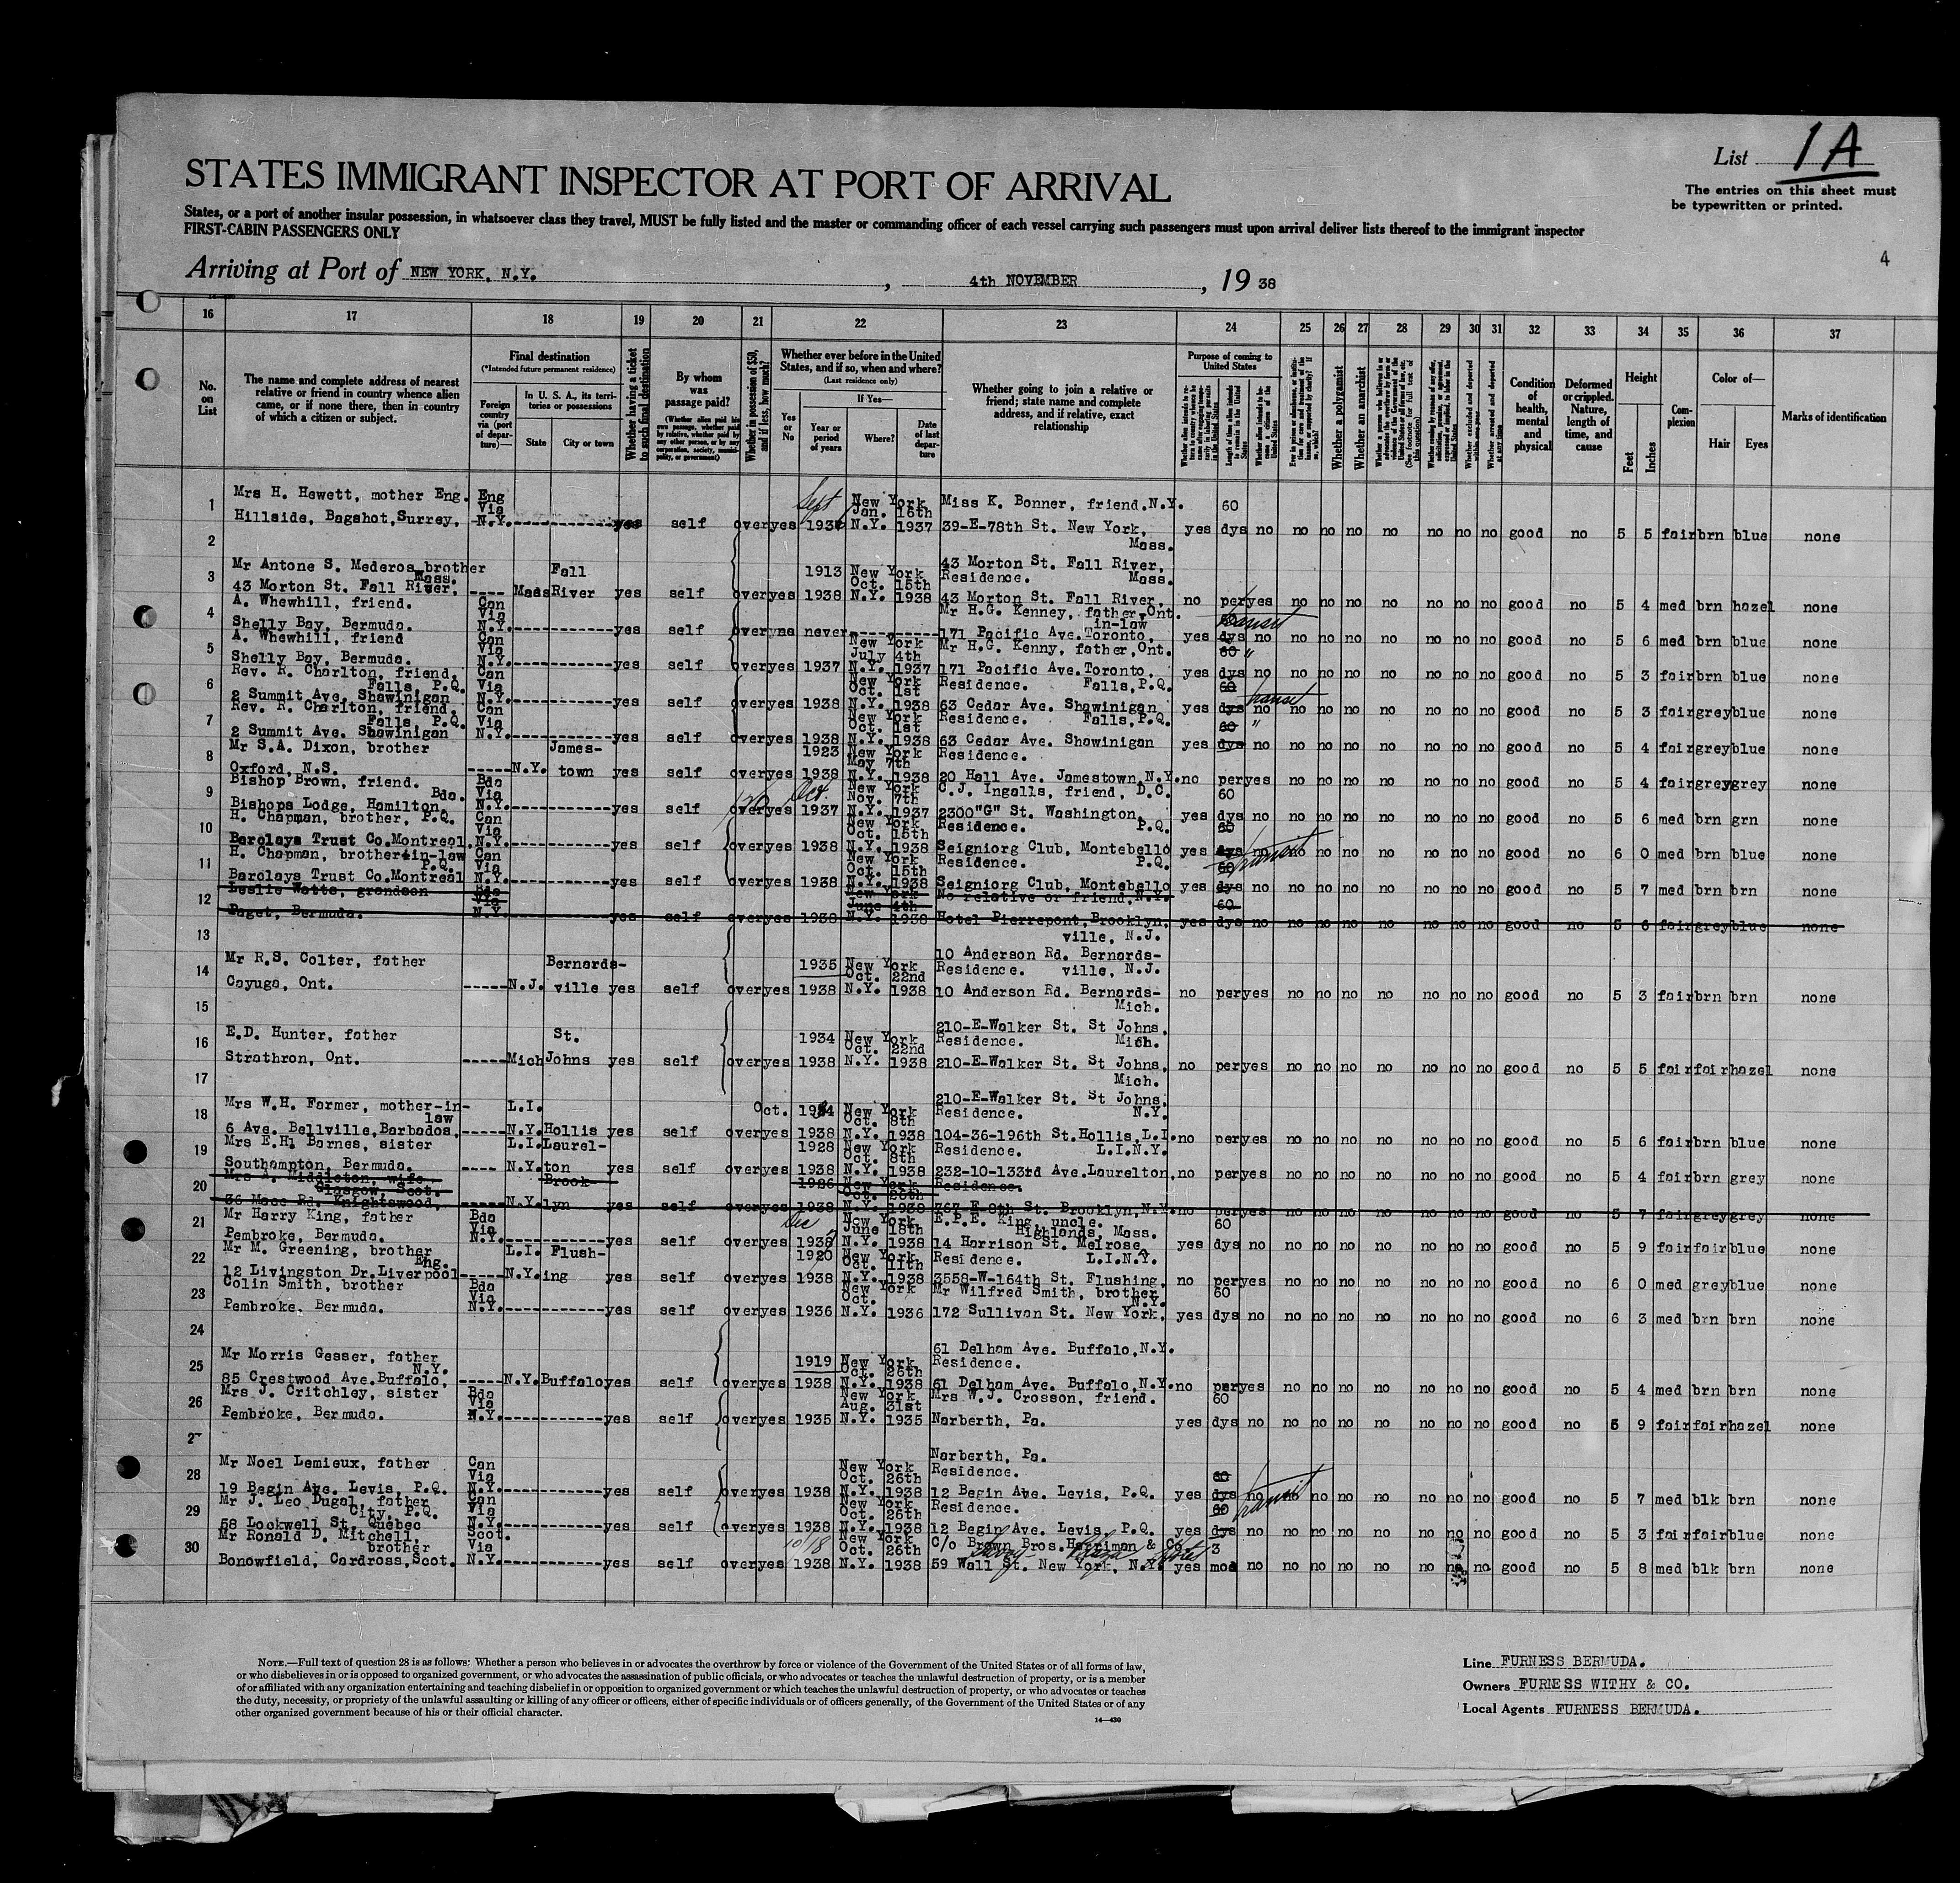 List 1A
The entries on this sheet must
be typewritten or printed.
STATES IMMIGRANT INSPECTOR AT PORT OF ARRIVAL
States, or a port of another insular possession, in whatsoever class they travel, MUST be fully listed and the master or commanding officer of each vessel carrying such passengers must upon arrival deliver lists thereof to the immigrant inspector
FIRST-CABIN PASSENGERS ONLY
4
Arriving at Port of NEW YORK, N.Y. , 4th NOVEMBER , 19 38
16 17 18 19 20 21 22 23 24 25 26 27 28 29 30 31 32 33 34 35 36 37
No. on List
The name and complete address of nearest relative or friend in country whence alien came, or if none there, then in country of which a citizen or subject.
Final destination
(*Intended future permanent residence)
Foreign country via (port of departure)—
In U. S. A., its territories or possessions
State City or town
Whether having a ticket to such final destination
By whom was passage paid?
(Whether alien paid his own passage, whether paid by relative, whether paid by any other person, or by any corporation, society, municipality, or government)
Whether in possession of $50, and if less, how much?
Whether ever before in the United States, and if so, when and where?
(Last residence only)
Yes or No
If Yes—
Year or period of years
Where?
Date of last departure
Whether going to join a relative or friend; state name and complete address, and if relative, exact relationship
Purpose of coming to United States
Whether a polygamist
Whether an anarchist
Condition of health, mental and physical
Deformed or crippled. Nature, length of time, and cause
Height
Feet Inches
Complexion
Color of—
Hair Eyes
Marks of identification
1 Mrs H. Hewett, mother Eng. Eng Via Sept New York Jan. 16th Miss K. Bonner, friend.N.Y. 60
Hillside, Bagshot, Surrey, N.Y. yes self over yes 193 N.Y. 1937 39-E-78th St. New York, yes dys no no no no no no no no good no 5 5 fair brn blue none
2 Mass.
43 Morton St. Fall River,
3 Mr Antone S. Mederos brother Mass. Fall 1913 New York Oct. 15th Residence. Mass.
43 Morton St. Fall River, ---- Mass River yes self over yes 1938 N.Y. 1938 43 Morton St. Fall River, no per yes no no no no no no no good no 5 4 med brn hazel none
4 A. Whewhill, friend. Can Via Mr H.G. Kenney, father Ont. in-law 60 transit
Shelly Bay, Bermuda. N.Y. yes self over no never 171 Pacific Ave. Toronto, yes dys no no no no no no no no good no 5 6 med brn blue none
5 A. Whewhill, friend Can Via New York July 4th Mr H.G. Kenny, father, Ont. 60 "
Shelly Bay, Bermuda. N.Y. yes self over yes 1937 N.Y. 1937 171 Pacific Ave. Toronto, yes dys no no no no no no no no good no 5 3 fair brn blue none
6 Rev. R. Charlton, friend, Falls, P.Q. Can Via New York Oct. 1st Residence. Falls, P.Q. 60 transit
2 Summit Ave, Shawinigan N.Y. yes self over yes 1938 N.Y. 1938 63 Cedar Ave. Shawinigan yes dys no no no no no no no no good no 5 3 fair grey blue none
7 Rev. R. Charlton, friend, Falls, P.Q. Can Via New York Oct. 1st Residence. Falls, P.Q. 60 "
2 Summit Ave. Shawinigan N.Y. yes self over yes 1938 N.Y. 1938 63 Cedar Ave. Shawinigan yes dys no no no no no no no no good no 5 4 fair grey blue none
8 Mr S.A. Dixon, brother James- 1923 New York May 7th Residence.
Oxford, N.S. ----- N.Y. town yes self over yes 1938 N.Y. 1938 20 Hall Ave. Jamestown, N.Y. no per yes no no no no no no no good no 5 4 fair grey grey none
9 Bishop Brown, friend. Bda. Bda Via Oct. New York Nov. 7th C.J. Ingalls, friend, D.C. 60
Bishops Lodge, Hamilton, N.Y. yes self over yes 1937 N.Y. 1937 2300 "G" St. Washington, yes dys no no no no no no no no good no 5 6 med brn grn none
10 H. Chapman, brother, P.Q. Can Via New York Oct. 15th Residence. P.Q. 60
Barclays Trust Co. Montreal. N.Y. yes self over yes 1938 N.Y. 1938 Seigniorg Club, Montebello yes dys no no no no no no no no good no 6 0 med brn blue none
11 H. Chapman, brother-in-law P.Q. Can Via New York Oct. 15th Residence. P.Q. 60 transit
Barclays Trust Co. Montreal N.Y. yes self over yes 1938 N.Y. 1938 Seigniorg Club, Montebello yes dys no no no no no no no no good no 5 7 med brn brn none
12 Leslie Watts, grandson Bda Via New York June 4th No relative or friend, N.Y. 60
Paget, Bermuda. N.Y. yes self over yes 1938 N.Y. 1938 Hotel Pierrepont, Brooklyn, yes dys no no no no no no no no good no 5 6 fair grey blue none
13 ville, N.J.
10 Anderson Rd. Bernards-
14 Mr R.S. Colter, father Bernards- 1935 New York Oct. 22nd Residence. ville, N.J.
Cayuga, Ont. ----- N.J. ville yes self over yes 1938 N.Y. 1938 10 Anderson Rd. Bernards- no per yes no no no no no no no good no 5 3 fair brn brn none
15 Mich.
210-E-Walker St. St Johns,
16 E.D. Hunter, father St. 1934 New York Oct. 22nd Residence. Mich.
Strathron, Ont. ----- Mich Johns yes self over yes 1938 N.Y. 1938 210-E-Walker St. St Johns, no per yes no no no no no no no good no 5 5 fair fair hazel none
17 Mich.
210-E-Walker St. St Johns,
18 Mrs W.H. Farmer, mother-in-law L.I. Oct. New York Oct. 8th Residence. N.Y.
6 Ave. Bellville, Barbados, ----- N.Y. Hollis yes self over yes 1938 N.Y. 1938 104-36-196th St. Hollis, L.I. no per yes no no no no no no no good no 5 6 fair brn blue none
19 Mrs E.Hl Barnes, sister L.I. Laurel- 1928 New York Oct. 8th Residence. L.I.N.Y.
Southampton, Bermuda. ---- N.Y. ton yes self over yes 1938 N.Y. 1938 232-10-133rd Ave. Laurelton, no per yes no no no no no no no good no 5 4 fair brn grey none
20 Mrs A. Middleton, wife Glasgow, Scot. Brook- 1926 New York Oct. 26th Residence.
36 Mace Rd. Knightswood, ----- N.Y. lyn yes self over yes 1938 N.Y. 1938 767-E-8th St. Brooklyn, N.Y. no per yes no no no no no no no good no 5 7 fair grey grey none
21 Mr Harry King, father Bda Via Dec New York June 18th E.P.E. King, uncle. Highlands, Mass. 60
Pembroke, Bermuda. N.Y. yes self over yes 1938 N.Y. 1938 14 Harrison St. Melrose, yes dys no no no no no no no no good no 5 9 fair fair blue none
22 Mr M. Greening, brother Eng. L.I. Flush- 1920 New York Oct. 11th Residence. L.I.N.Y.
12 Livingston Dr. Liverpool ----- N.Y. ing yes self over yes 1938 N.Y. 1938 3558-W-164th St. Flushing, no per yes no no no no no no no good no 6 0 med grey blue none
23 Colin Smith, brother Bda Via New York Oct. Mr Wilfred Smith, brother N.Y. 60
Pembroke, Bermuda. N.Y. yes self over yes 1936 N.Y. 1936 172 Sullivan St. New York, yes dys no no no no no no no no good no 6 3 med brn brn none
24
61 Delham Ave. Buffalo, N.Y.
25 Mr Morris Gesser, father N.Y. 1919 New York Oct. 26th Residence.
85 Crestwood Ave. Buffalo, ----- N.Y. Buffalo yes self over yes 1938 N.Y. 1938 61 Delham Ave. Buffalo, N.Y. no per yes no no no no no no no good no 5 4 med brn brn none
26 Mrs J. Critchley, sister Bda Via New York Aug. 31st Mrs W.J. Crosson, friend. 60
Pembroke, Bermuda. N.Y. yes self over yes 1935 N.Y. 1935 Narberth, Pa. yes dys no no no no no no no no good no 5 9 fair fair hazel none
2
Narberth, Pa.
28 Mr Noel Lemieux, father Can Via New York Oct. 26th Residence. 60
19 Begin Ave. Levis, P.Q. N.Y. yes self over yes 1938 N.Y. 1938 12 Begin Ave. Levis, P.Q. yes dys no no no no no no no no good no 5 7 med blk brn none
29 Mr J. Leo Dugal, father City, P.Q. Can Via New York Oct. 26th Residence. 60 transit
58 Lockwell St. Quebec N.Y. yes self over yes 1938 N.Y. 1938 12 Begin Ave. Levis, P.Q. yes dys no no no no no no no no good no 5 3 fair fair blue none
30 Mr Ronald D. Mitchell, brother Scot. Via 10/18 New York Oct. 26th C/o Brown Bros. Harriman & Co. 3
Bonowfield, Cardross, Scot. N.Y. yes self over yes 1938 N.Y. 1938 59 Wall St. New York, N.Y. yes mod no no no no no no no no good no 5 8 med blk brn none
NOTE.—Full text of question 28 is as follows: Whether a person who believes in or advocates the overthrow by force or violence of the Government of the United States or of all forms of law,
or who disbelieves in or is opposed to organized government, or who advocates the assassination of public officials, or who advocates or teaches the unlawful destruction of property, or is a member
of or affiliated with any organization entertaining and teaching disbelief in or opposition to organized government or which teaches the unlawful destruction of property, or who advocates or teaches
the duty, necessity, or propriety of the unlawful assaulting or killing of any officer or officers, either of specific individuals or of officers generally, of the Government of the United States or of any
other organized government because of his or their official character.
14—430
Line FURNESS BERMUDA.
Owners FURNESS WITHY & CO.
Local Agents FURNESS BERMUDA.